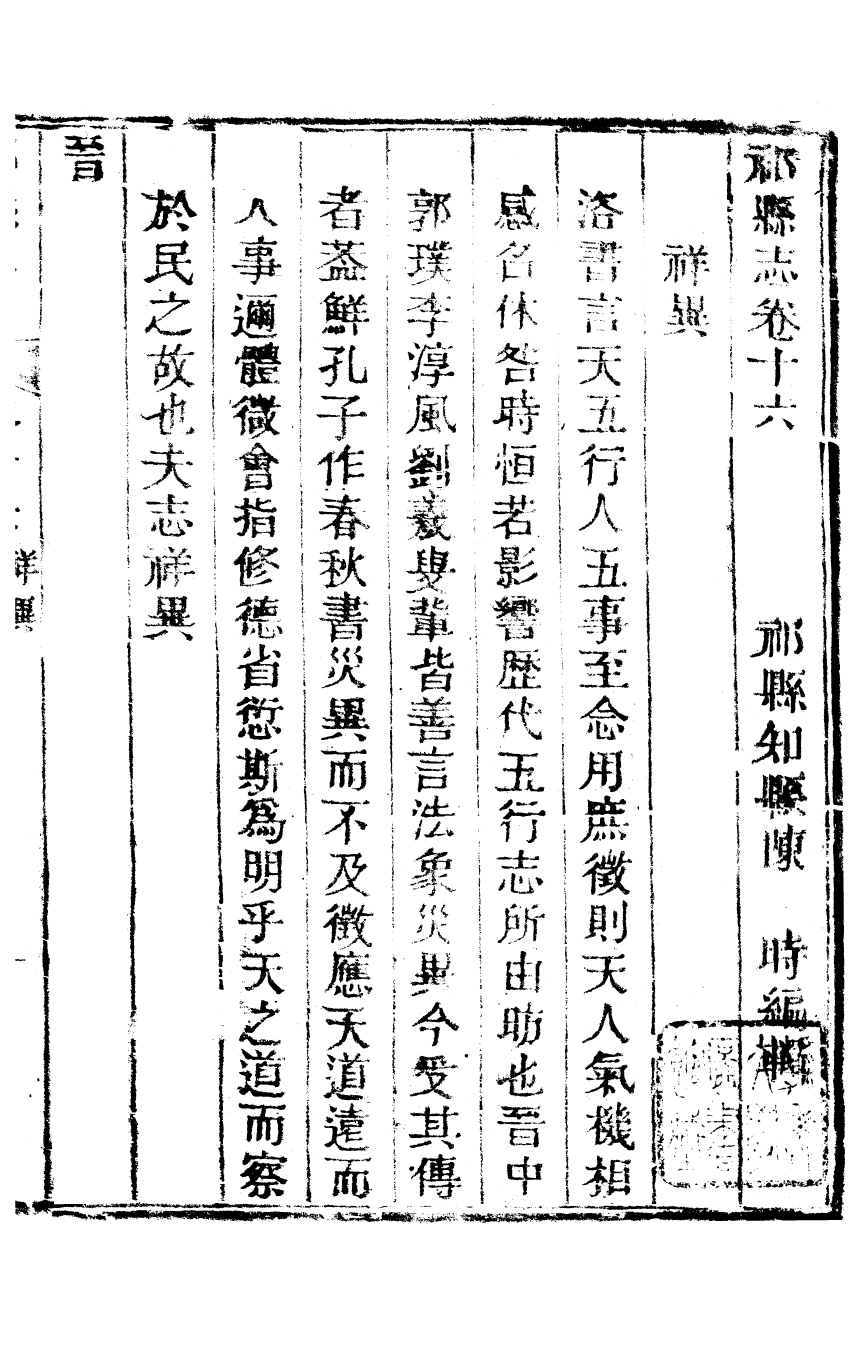 祁縣志卷十六　　祁縣知縣陳　時編輯
祥異
洛書言天五行人五事至念用庶徵則天人氣機相
感召休咎時恒若影響歷代五行志所由昉也晉中
郭璞李淳風劉羲叟輩皆善言法象災異今受其傳
者葢鮮孔子作春秋書災異而不及徵應天道遠而
人事邇體微會指修德省愆斯爲明乎天之道而察
於民之故也夫志祥異
晉
祥異